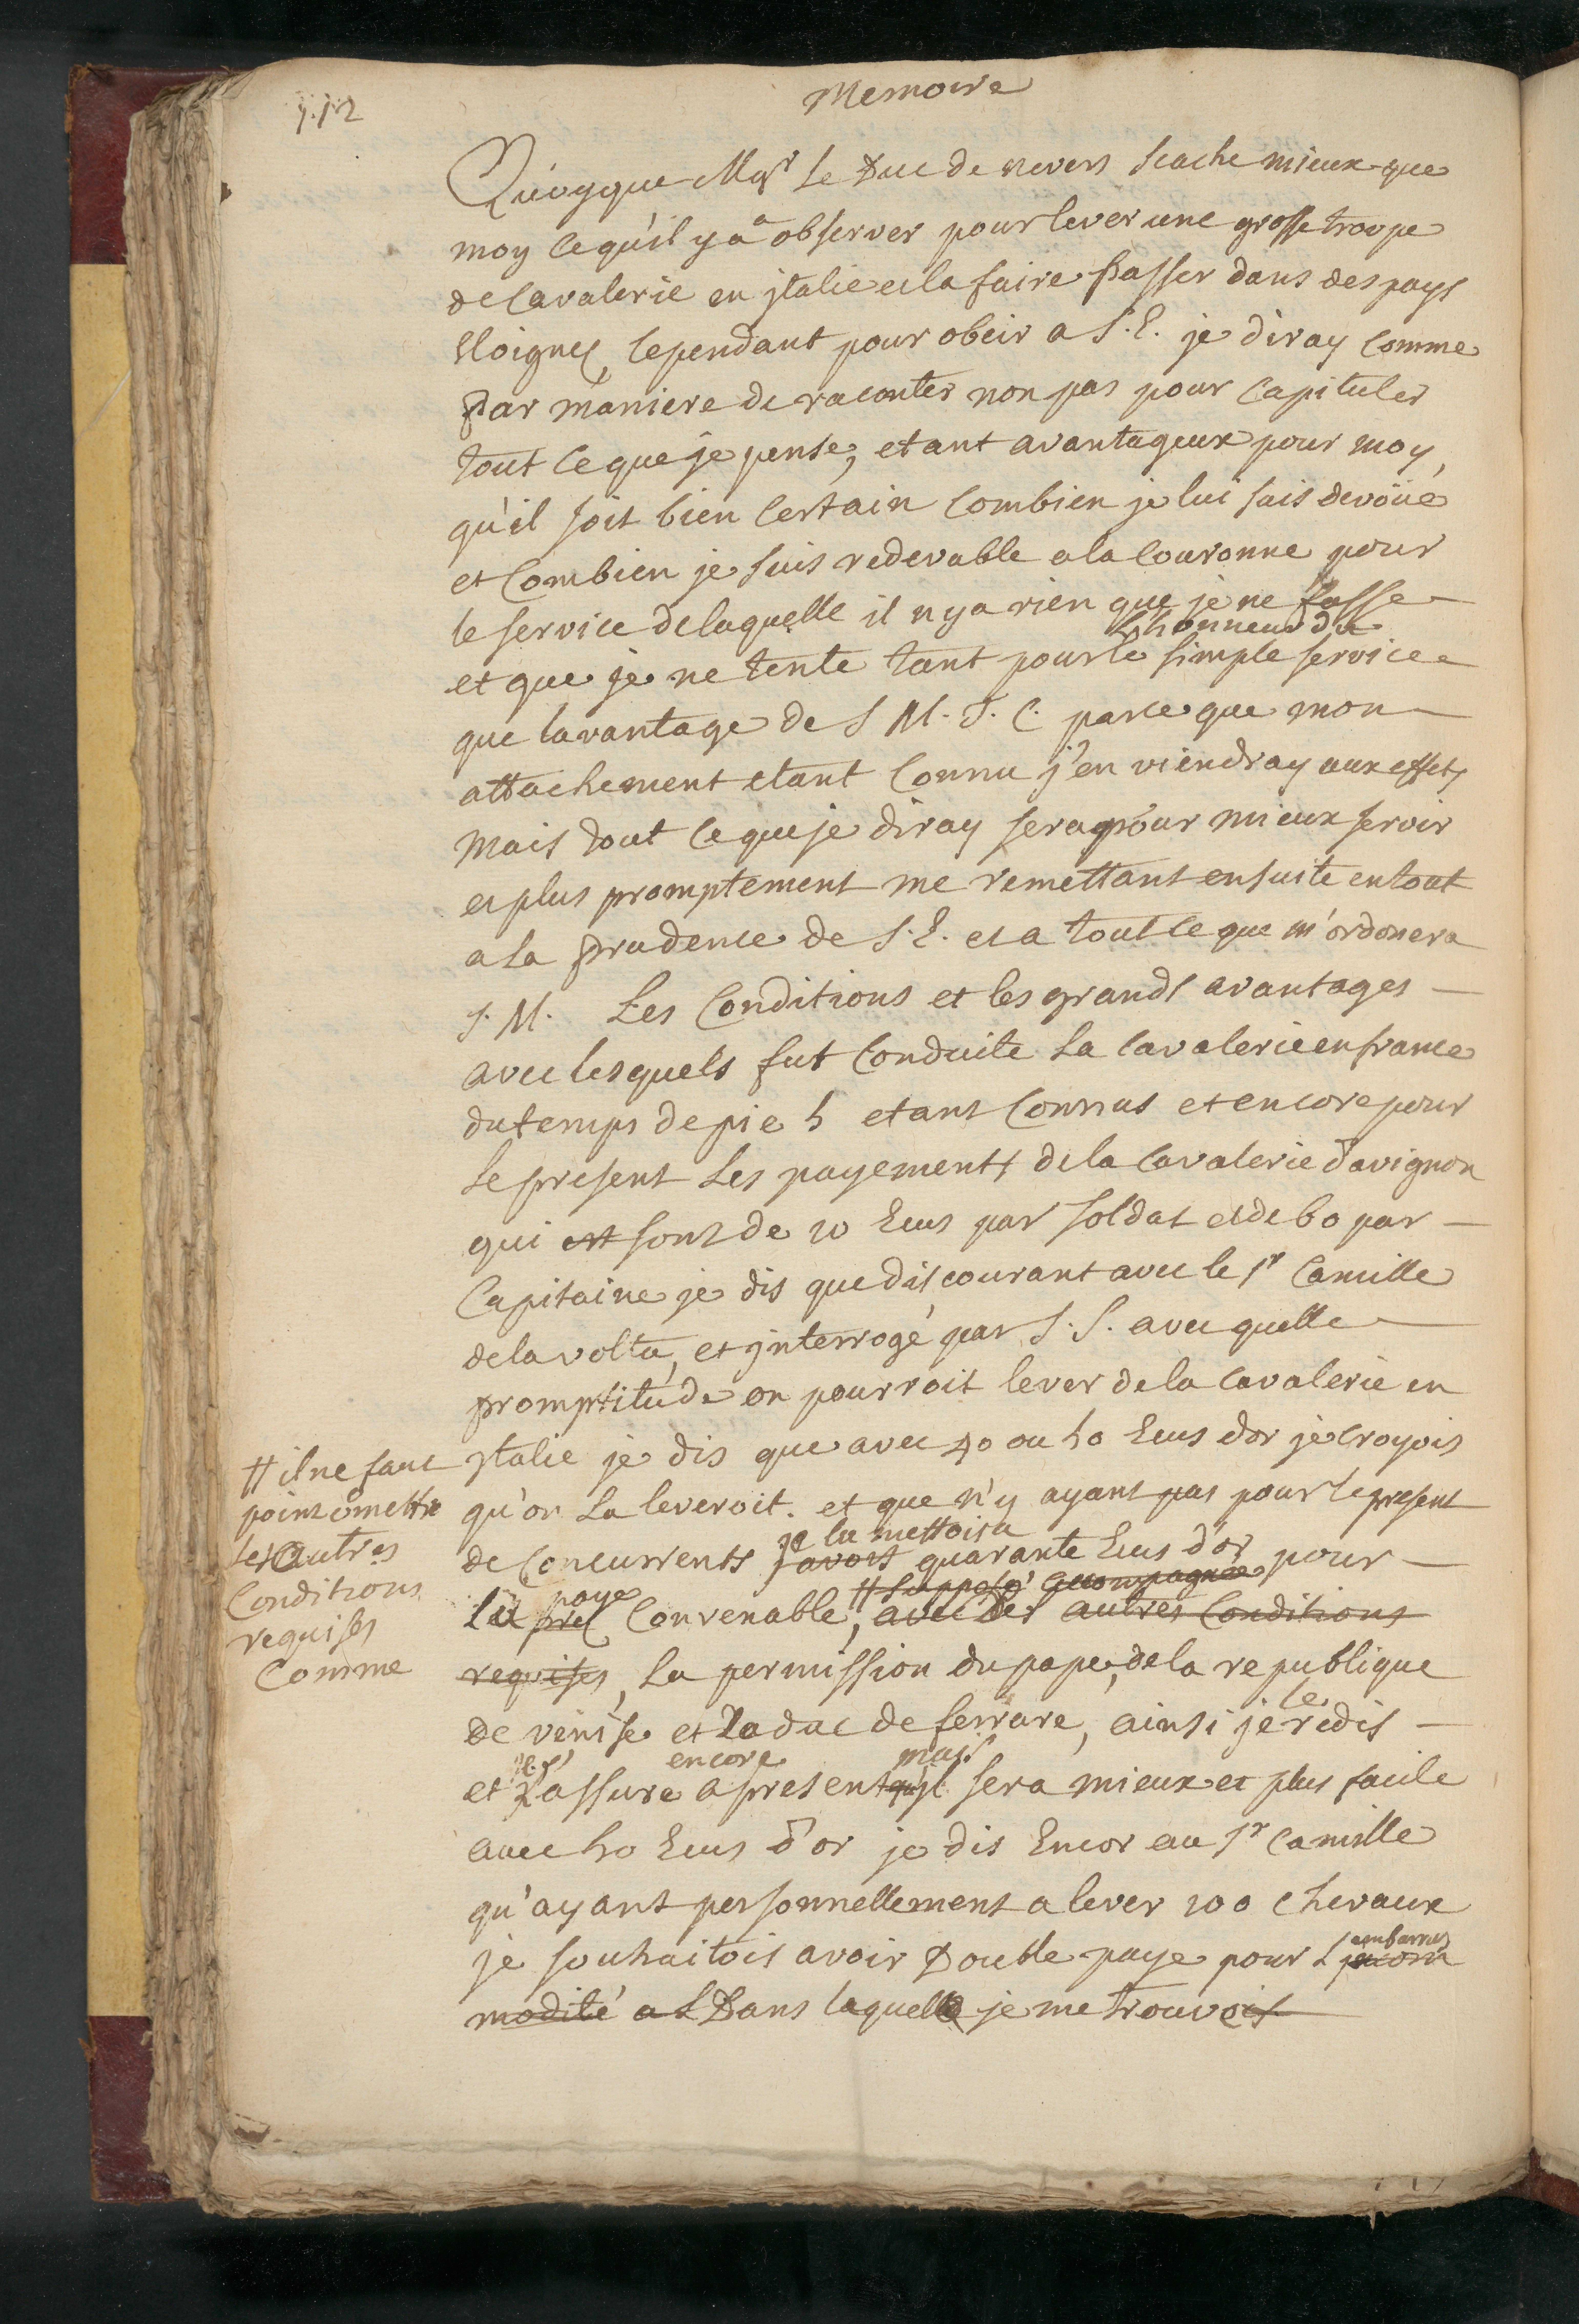 Memoire
Quoyque Mgr le Duc de nevers scache mieux que
moy ce qu'il y a a observer pour lever une grosse troupe
de Cavalerie en jtalie et la faire passer dans des pays
Eloignez, cependant pour obeir a S. E. je diray comme
par maniere de raconter non pas pour capituler
tout ce que je pense, etant avantageux pour moy,
qu'il soit bien certain combien je lui suis devoüé
et combien je suis redevable a la couronne pour
le service de laquelle il n y a rien que je ne fasse
l'honneur du
et que je ne tente tant pour le simple service
que lavantage de S M. T. C. parce que mon
attachement etant connu j'en viendray aux effets
mais tout ce que je diray sera pour mieux servir
et plus promptement me remettant ensuite en tout
a la prudence de S. E. et a tout ce que m'ordonera
S. M. Les Conditions et les grands avantages
avec lesquels fut conduite la cavalerie en france
du temps de pie 5 etant connus et encore pour
le present les payements de la cavalerie d'avignon
qui est sont de 20 Ecus par soldat et de 60 par
Capitaine je dis que discourant avec le sr Camille
de la volta, et jnterrogé par S. S. avec quelle
promptitude on pourroit lever de la cavalerie en
jtalie je dis que avec 40 ou 50 Ecus dor je croyois
qu'on la leveroit. et que n'y ayant pas pour le present
je la mettois a
de concurrents javois quarante Ecus d'or pour
paye # supposé accompagnée
la convenable, avec les autres conditions
# il ne faut
point omettre
les autres
Conditions
requises
Comme
requises, la permission du pape, de la republique
de venise et du duc de ferrare, ainsi je le redis
encore mais
et l'assure a present qu'il sera mieux et plus facile
avec 50 Ecus d'or je dis Encor au sr Camille
qu'ayant personnellement a lever 200 chevaux
je souhaitois avoir Double paye pour l'embarras jncom
modité Dans laquelle je me trouvois